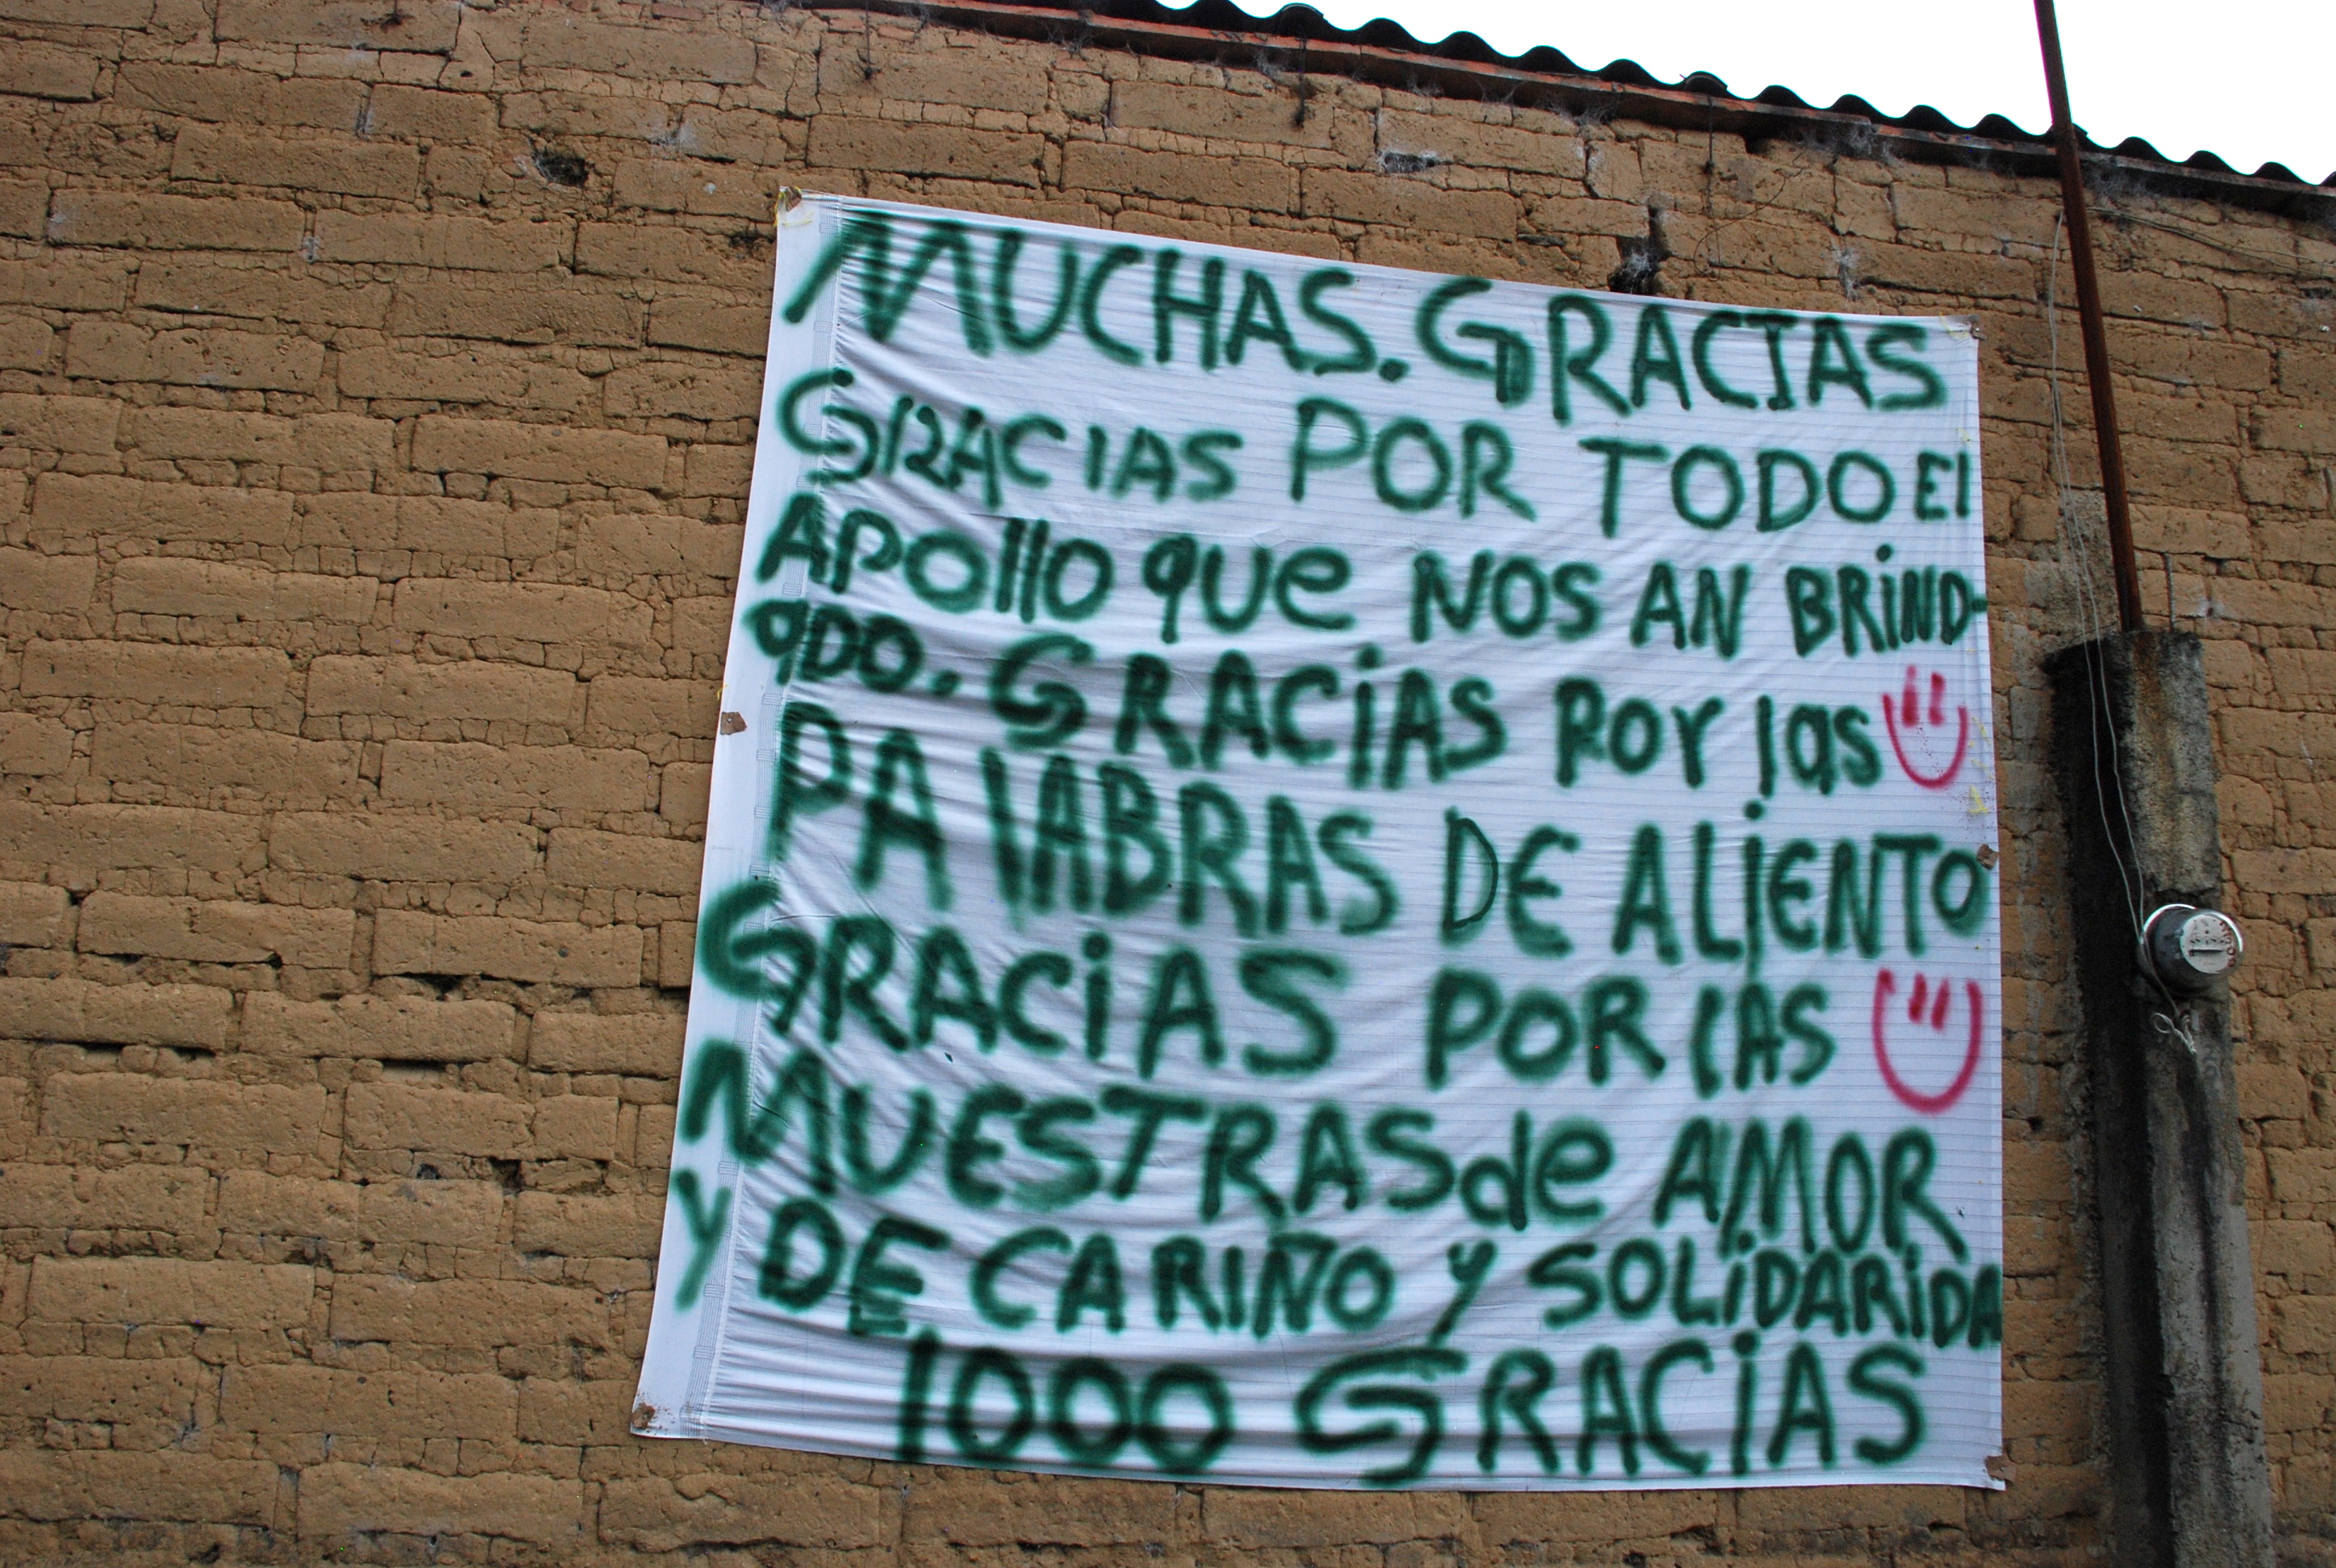 MUCHAS. GRACIAS
GRACIAS POR TODO El
APOllO que NOS AN BRiND-
aDO. GRACiAS PoR las
PAlABRAS DE ALiENTO
GRACiAS POR lAS
MUESTRAS de AMOR
Y DE CARIÑO Y SOLiDARiDA
1000 GRACiAS